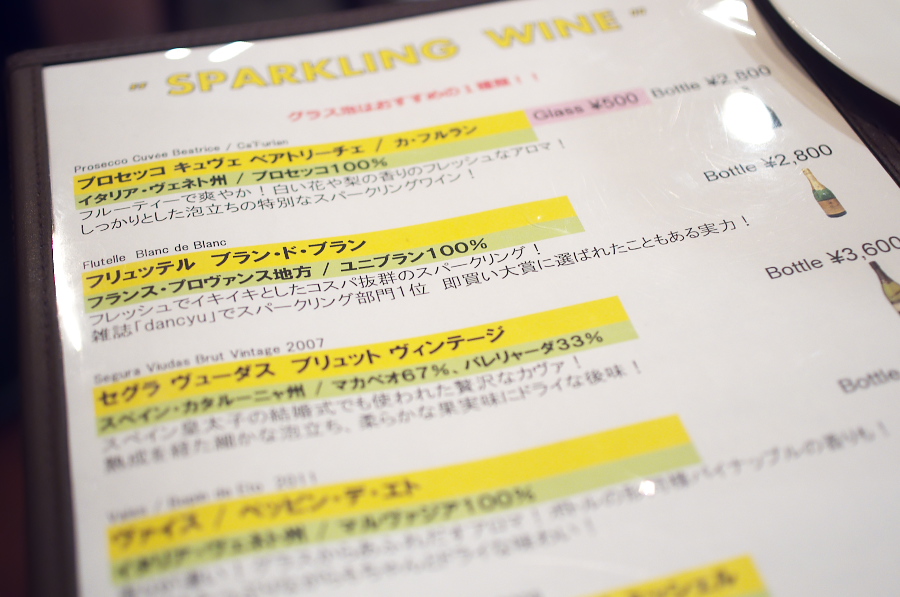 " SPARKLING WINE "
グラス泡はおすすめの1種類！！
Prosecco Cuvee Beatrice / Ca'Furlan
プロセッコ キュヴェ ベアトリーチェ / カ・フルラン Glass ¥500 Bottle ¥2,800
イタリア・ヴェネト州 / プロセッコ100%
フルーティーで爽やか！白い花や梨の香りのフレッシュなアロマ！
しっかりとした泡立ちの特別なスパークリングワイン！
Flutelle Blanc de Blanc
フリュッテル ブラン・ド・ブラン Bottle ¥2,800
フランス・プロヴァンス地方 / ユニブラン100%
フレッシュでイキイキとしたコスパ抜群のスパークリング！
雑誌「dancyu」でスパークリング部門1位 即買い大賞に選ばれたこともある実力！
Segura Viudas Brut Vintage 2007
セグラ ヴューダス ブリュット ヴィンテージ Bottle ¥3,600
スペイン・カタルーニャ州 / マカベオ67%、パレリャーダ33%
スペイン皇太子の結婚式でも使われた贅沢なカヴァ！
熟成を経た細かな泡立ち、柔らかな果実味にドライな後味！
2011
ヴァイス / ペッピン・デ・エト Bottle
イタリア・ヴェネト州 / マルヴァジア100%
香りが凄い！グラスからあふれだすアロマ！ パイナップルの香りも！
ドライな味わい！